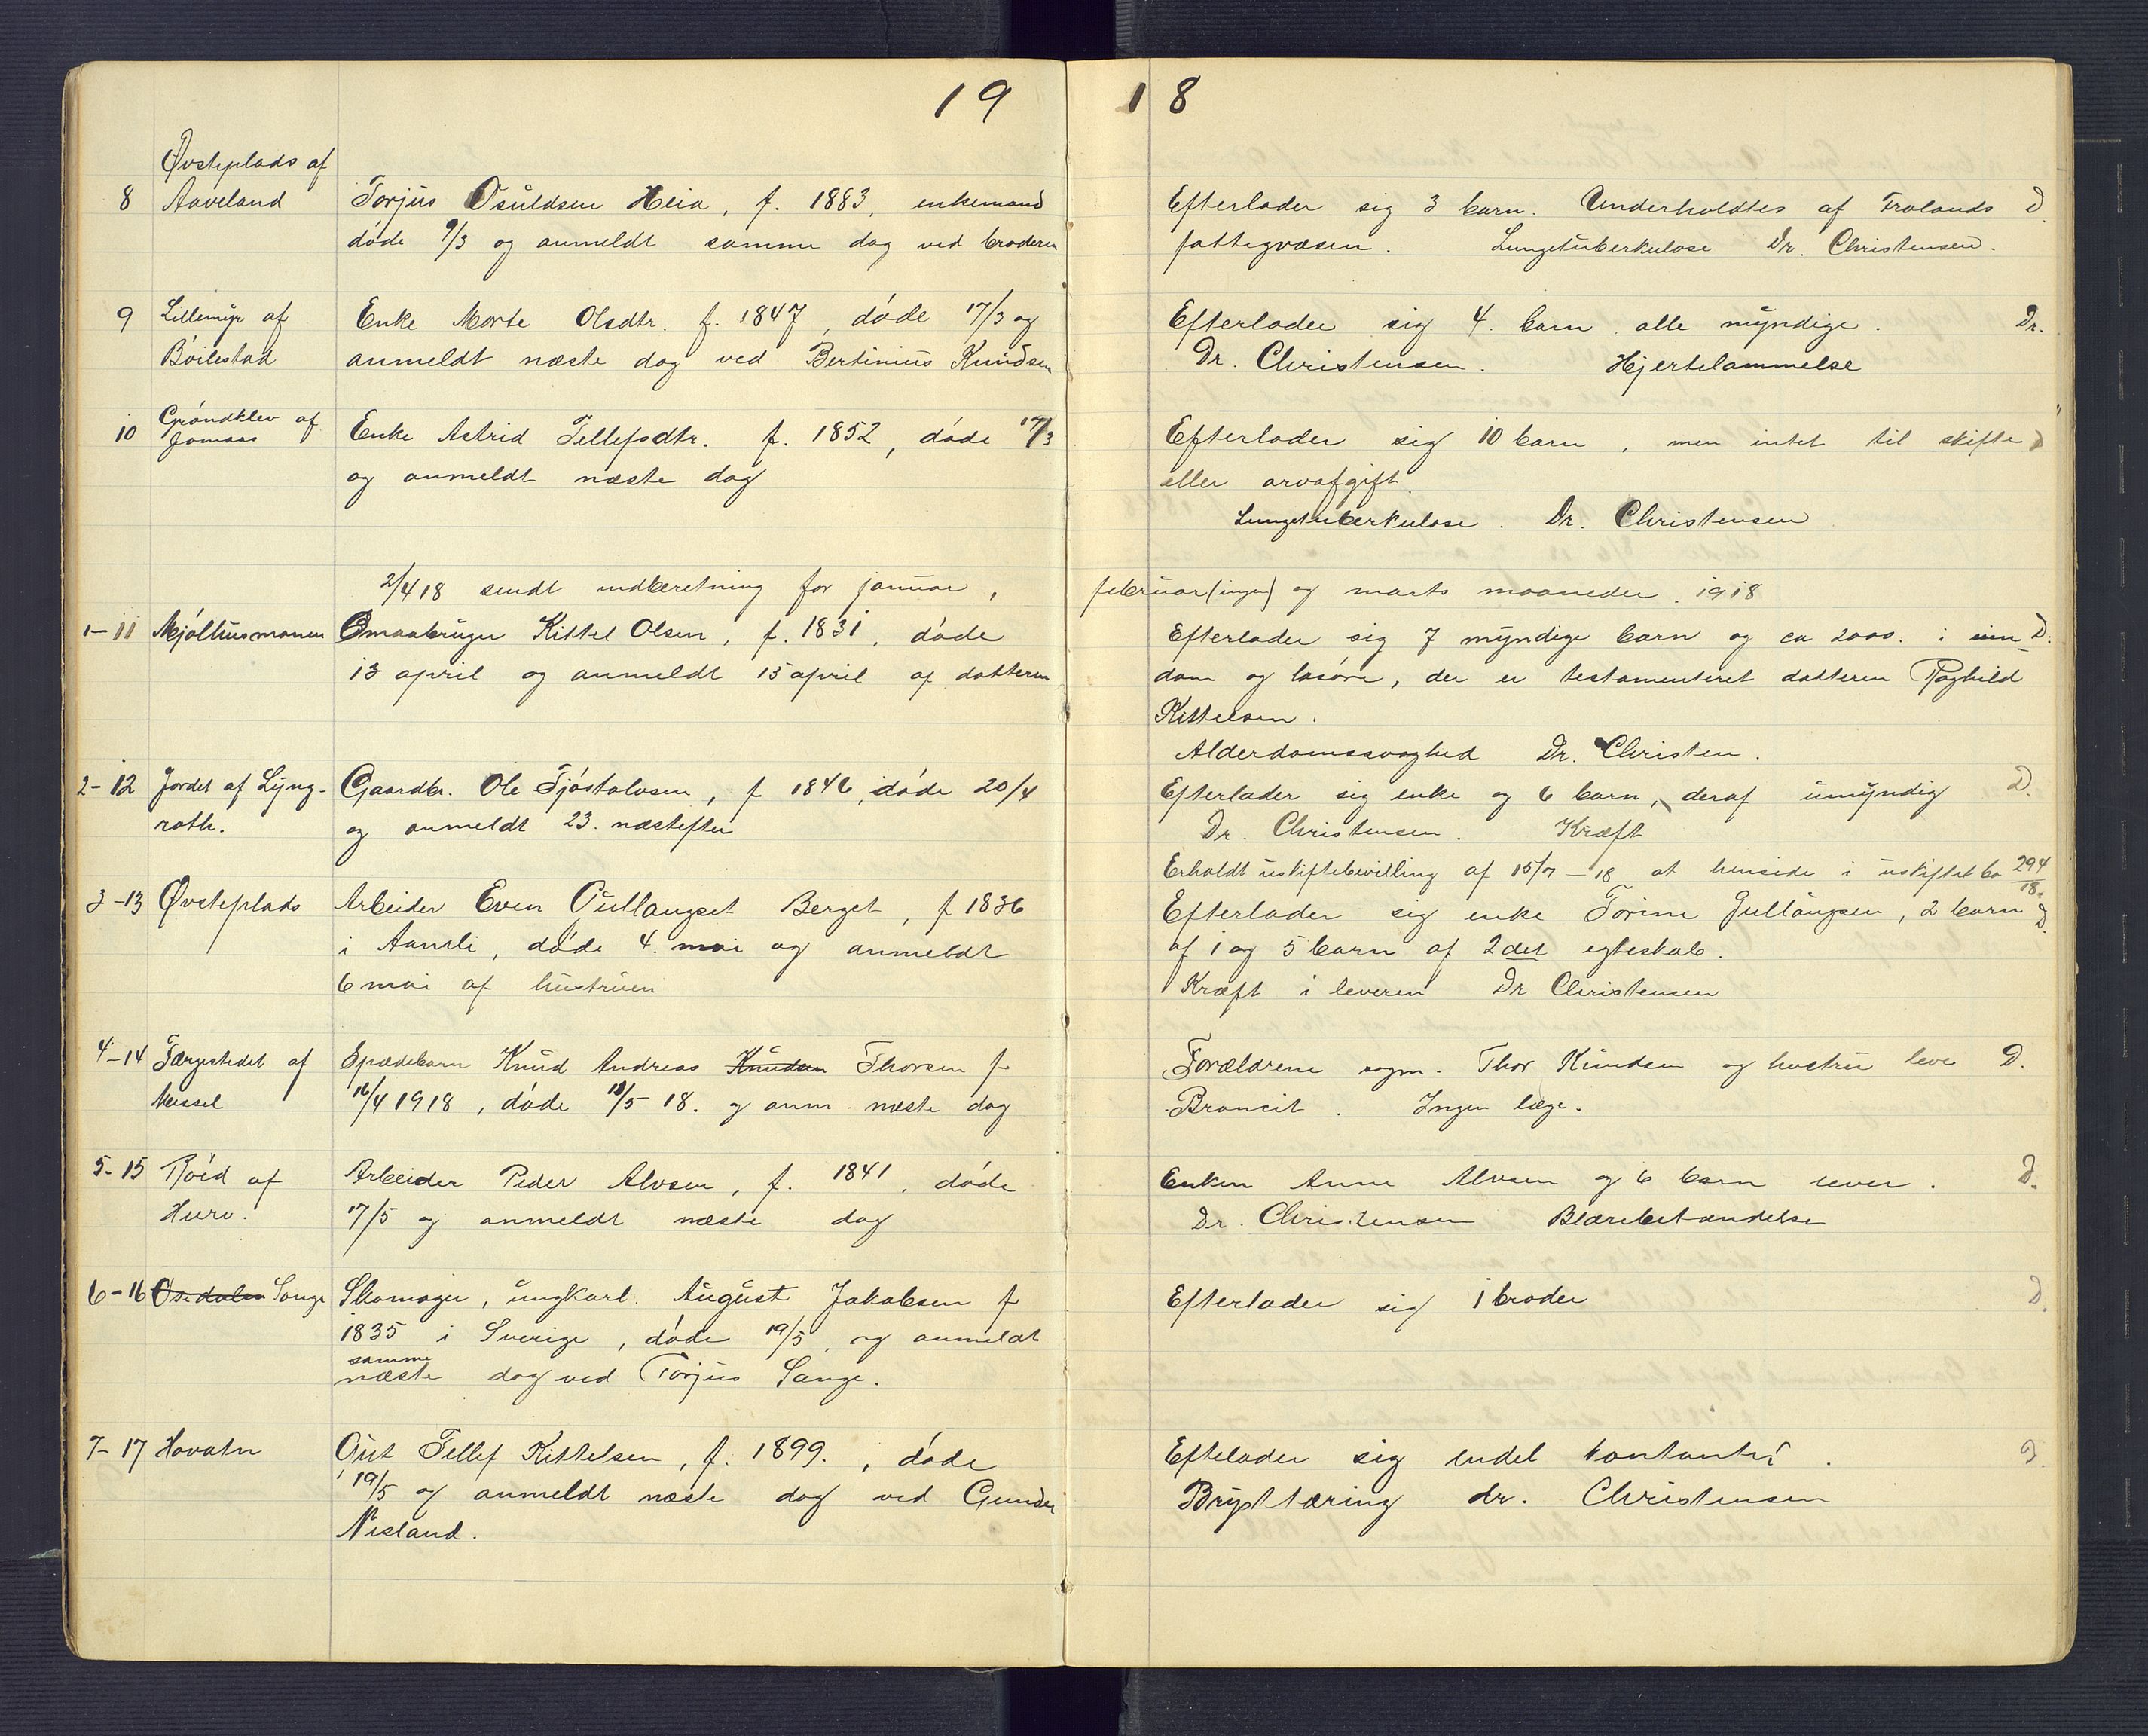 1918
Øvsteplads af
8 Aaveland Torjus Osuldsen Heia, f. 1883, enkemand Efterlader sig 3 barn. Underholdtes af Frolands D.
døde 9/3 og anmeldt samme dag ved broderen fattigvæsen. Lungetuberkulose Dr. Christensen.
9 Lillemyr af Enke Marte Olsdtr. f. 1847, døde 17/3 og Efterlader sig 4 barn alle myndige. Dr.
Bøilestad anmeldt næste dag ved Bertinius Knudsen Dr. Christensen. Hjertelammelse
Grøndklev af
10 Jomaas Enke Astrid Tellefsdtr. f. 1852, døde 17/3 Efterlader sig 10 barn, men intet til skifte D
og anmeldt næste dag eller arvafgift.
Lungetuberkulose. Dr. Christensen
2/4 18 sendt indberetning for januar, februar (ingen) og marts maaneder. 1918
1-11 Mjølhusmonen Smaabruger Kittel Olsen, f. 1831, døde Efterlader sig 7 myndige barn og ca 2000. i eien- D.
13 april og anmeldt 15 april af datteren dom og løsøre, der er testamenteret datteren Raghild
Kittelsen.
Alderdomssvaghed Dr. Christen.
2-12 Jordet af Lyng- Gaardbr. Ole Tjøstolvsen, f 1846, døde 20/4 Efterlader sig enke og 6 barn, deraf umyndig D.
roth. og anmeldt 23. næstefter Dr. Christensen. Kræft
Erholdt uskiftebevilling af 15/7-18 at hensidde i uskiftet bo 294/18.
3-13 Øvsteplads Arbeider Even Gullaugset Berget, f 1836 Efterlader sig enke Torine Gullaugsen, 2 barn D.
i Aamli, døde 4. mai og anmeldt af 1 og 5 barn af 2det egteskab.
6 mai af hustruen Kræft i leveren Dr Christensen
4-14 Færgestedet af Spædebarn Knud Andreas Knudsen Thorsen f Forældrene sagm. Thor Knudsen og hustru leve D.
Messel 16/4 1918, døde 18/5 18. og anm. næste dag Broncit. Ingen læge.
5-15 Røed af Arbeider Peder Alvsen, f. 1841, døde Enken Anne Alvsen og 6 barn lever. D.
Hurv. 17/5 og anmeldt næste dag Dr. Christensen Blærebetændelse
6-16 Osedalen Songe Skomager, ungkarl. August Jakobsen f Efterlader sig 1 broder D.
1835 i Sverige, døde 19/5, og anmeldt
samme
næste dag ved Torjus Songe.
7-17 Hovatn Gut Tellef Kittelsen, f. 1899., døde Efterlader sig endel kontanter. D.
19/5 og anmeldt næste dag ved Gunder Brysttæring dr. Christensen
Nisland.